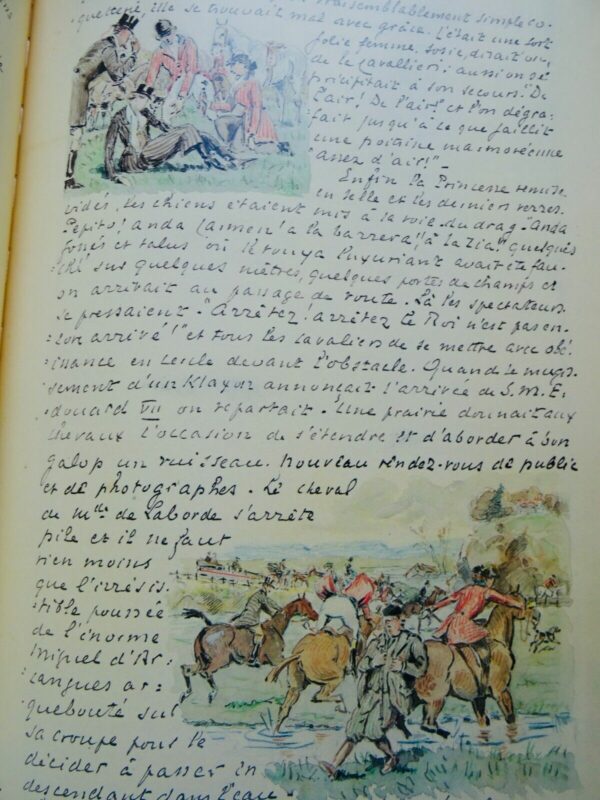 vraisemblablement simple co-
quetterie, elle se trouvait mal avec grâce. C'était une fort
jolie femme, sosie, disait-on,
de la Cavalieri; aussi on se
précipitait à son secours. "De
l'air! De l'air!" et l'on dégra-
fait jusqu'à ce que faillit
une poitrine marmoréenne
"assez d'air!"–
Enfin la Princesse remise
en selle et les derniers verres
vidés, les chiens étaient mis à la voie du drag. "Anda
Pepito! anda Caïmon! a la barrera! a la quelques
fossés et talus où le touya luxuriant avait été fau-
-ché sur quelques mètres, quelques portes de champs et
on arrivait au passage de route. Là les spectateurs
se pressaient. "Arrêtez! arrêtez le Roi n'est pas en-
-core arrivé!" et tous les cavaliers de se mettre avec obé-
-issance en cercle devant l'obstacle. Quand le mugis-
-sement d'un Klaxon annonçait l'arrivée de S.M.E-
-douard VII on repartait. Une prairie donnait aux
chevaux l'occasion de s'étendre et d'aborder à bon
galop un ruisseau. Nouveau rendez-vous de public
et de photographes. Le cheval
de Mde de Laborde s'arrête
pile et il ne faut
rien moins
que l'irrésis-
-tible poussée
de l'énorme
Miguel d'Ar-
-cangues ar-
-quebouté sur
sa croupe pour le
décider à passer en
descendant dans l'eau